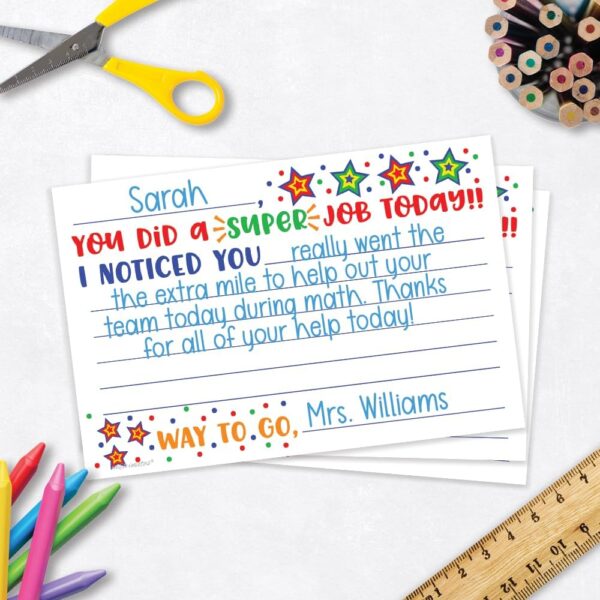 Sarah,
YOU DID A SUPER JOB TODAY!!
I NOTICED YOU really went the
the extra mile to help out your
team today during math. Thanks
for all of your help today!
WAY TO GO, Mrs. Williams
!!
1 2 3 4 5 6 7